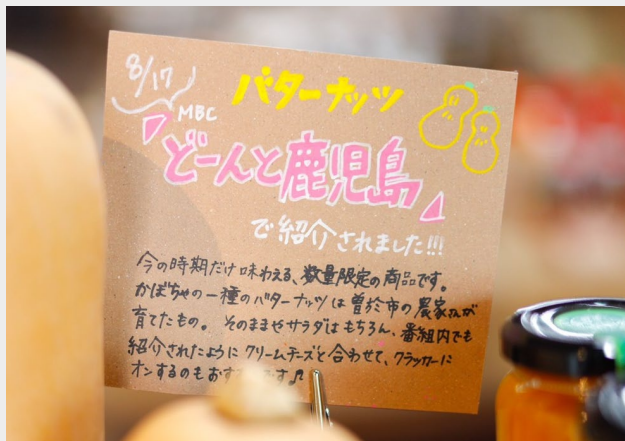 8/17
バターナッツ
MBC
「どーんと鹿児島」
で紹介されました!!!
今の時期だけ味わえる、数量限定の商品です。
かぼちゃの一種のバターナッツは曽於市の農家さんが
育てたもの。そのままやサラダはもちろん、番組内でも
紹介されたようにクリームチーズと合わせて、クラッカーに
オンするのもおすすめです♪